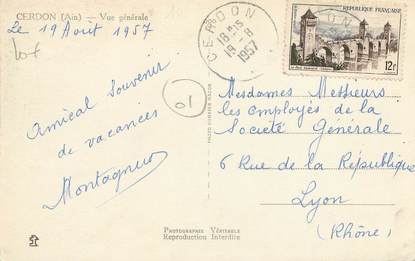 CERDON (Ain) — Vue générale
Le 19 Août 1957
Amical Souvenir
de vacances
Montagnier
CERDON
18H15
19-8
1957
REPUBLIQUE FRANÇAISE
12F
Mesdames Messieurs
les employés de la
Société Générale
6 Rue de la République
Lyon
(Rhône)
PHOTOGRAPHIE VÉRITABLE
Reproduction Interdite